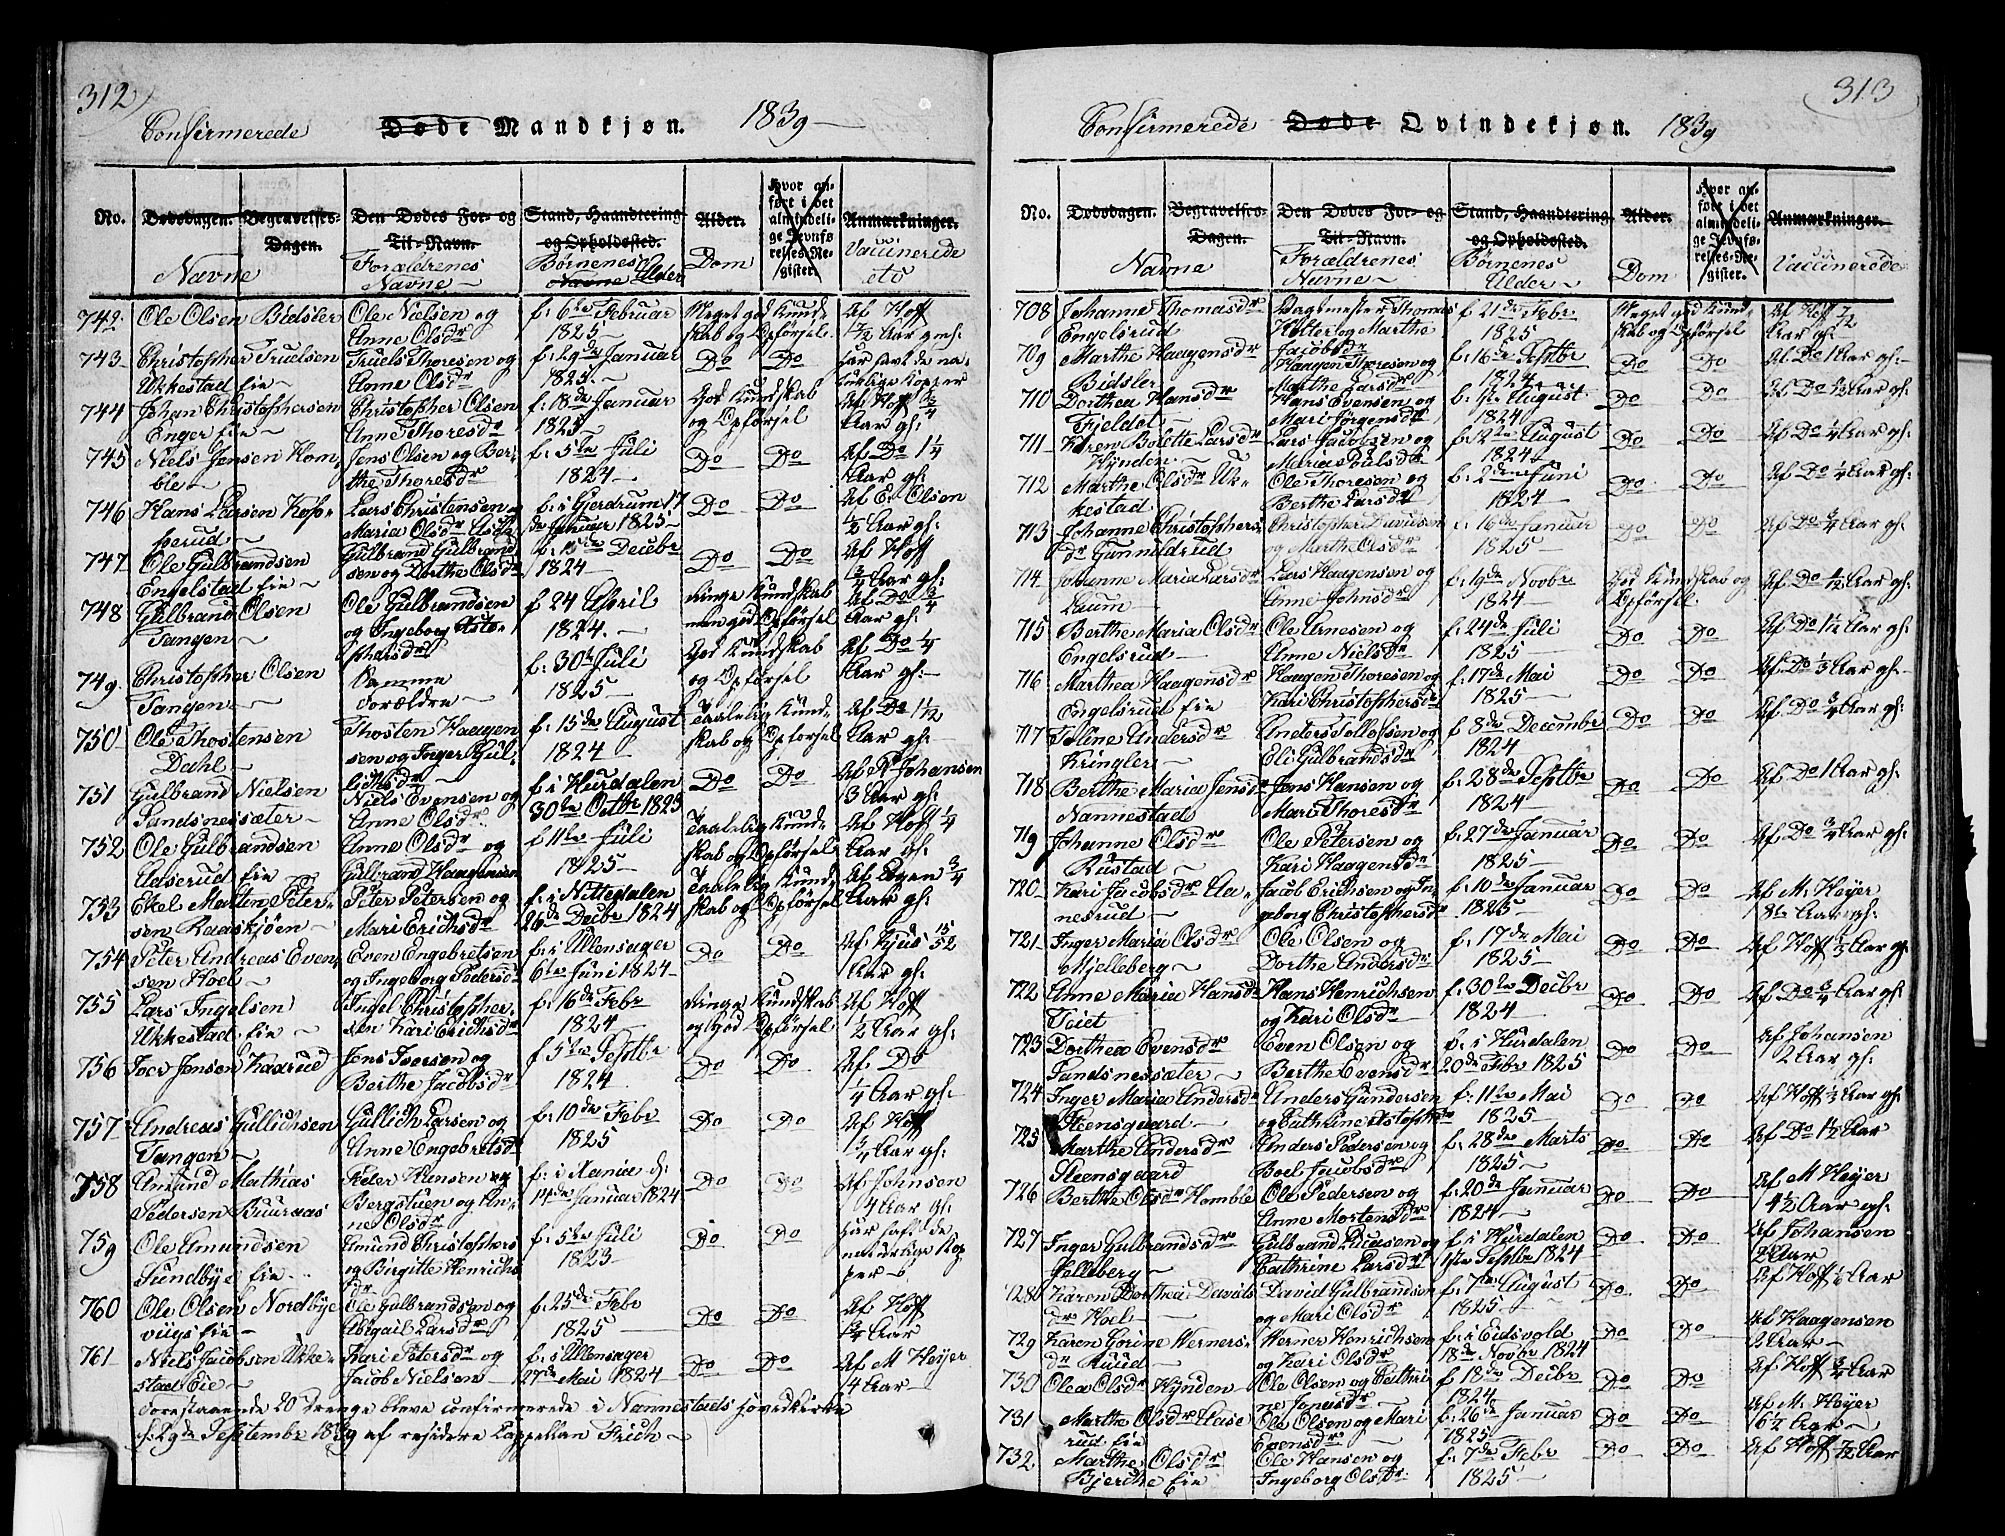 312
Confirmerede Døde Mandkjøn. 1839
No. Dødsdagen. Begravelses-Dagen. Den Dødes For- og Til-Navn. Stand, Haandtering og Opholdssted. Alder. Hvor anført i det almindelige Jevnførelses-Register. Anmærkninger.
Navne Forældrenes Navne Børnenes Navne Alder Dom Vaccinerede
742 Ole Olsen Bidsler Ole Nielsen og Anne Olsdr f. 6te Februar 1825 Meget god Kundskab og Opførsel Af Hoff
743 Christopher Truelsen Ukkestad Eie Truels Thoresen og Anne Olsdr f: 29de Januar 1825 Do Do
744 Johan Christophersen Enger Eie Christopher Olsen Anne Thoresdr f: 18de Januar 1825 God Kundskab og Opførsel Af Hoff 3/4 Aar gl:
745 Niels Jensen Homble Jens Olsen og Berthe Thoresdr f: 5te Juli 1824 Do Do Af Do 1 1/4 Aar gl:
746 Hans Larsen Lars Christensen og Maria Olsdr f: i Gjerdrum 17de Januar 1825 Do Do Af E. Olsen 1/2 Aar gl:
747 Ole Gulbrandsen Engelstad Eie Gulbrand Gulbrandsen og Dorthe Olsdr f: 15de Decbr 1824 Do Do Af Hoff 3/4 Aar gl:
748 Gulbrand Olsen Tangen Ole Gulbrandsen og Ingeborg f 24 April 1824 ringe Kundskab men god Opførsel Af Do 3/4 Aar gl:
749 Christopher Olsen Tangen Samme Forældre f: 30te Juli 1825 God Kundskab og Opførsel Af Do 1/4 Aar gl:
750 Ole Thostensen Dahl Thosten Haagensen og Inger f: 15de August 1824 Taalelig Kundskab og Opførsel Af Do 1 1/2 Aar gl:
751 Gulbrand Nielsen Sandsnessæter Niels Evensen og Anne Olsdr f i Hurdalen 30te Octbr 1823 Do Do Af P. Johansen 3 Aar gl:
752 Ole Gulbrandsen Aaserud Eie Anne Olsdr og Gulbrand Haagensen f 11te Juli 1825 Taalelig Kundskab og Opførsel Af Hoff 1/4 Aar gl:
753 Ekel Matten Petersen Raaskjøen Peter Petersen og Mari Erichsdr f: i Nittedalen 26de Decbr 1824 Taalelig Kundskab og Opførsel 3/4 Aar gl:
754 Peter Andreas Evensen Hoel Even Engebretsen og Ingeborg Pedersdr f: i Ullensager 6te Juni 1824 Do Do Af Kjus 15/52 Aar gl:
755 Lars Ingelsen Ukkestad Eie Ingel Christophersen Kari Erichsdr f: 16de Febr 1824 ringe Kundskab og God Opførsel Af Hoff 1/2 Aar gl:
756 Iver Jensen Kaarud Jens Iversen og Berthe Jacobsdr f: 5te Septbr 1824 Do Do Af Do 1/4 Aar gl:
757 Andreas Gullichsen Tangen Gullich Larsen og Anne Engebretsdr f: 10de Febr 1825 Do Do Af Hoff 1 3/4 Aar gl:
758 Amund Mathias Pedersen Buuraas Peter Hansen og Anne Olsdr f: i 14de Januar 1824 Do Do Af Johnsen 4 Aar gl:
759 Ole Amundsen Sundbye Eie Amund Christophers og Birgitte Henrichsdr f: 5te Juli 1823 Do Do har haft de naturlige Kopper
760 Ole Olsen Nordbye Eie Ole Gulbrandsen og Abigail Larsdr f: 25de Febr 1825 Do Do Af Hoff 3/4 Aar
761 Niels Jacobsen Ukkestad Eie Kari Petersdr og Jacob Nielsen f: i Ullensager 27de Mai 1824 Do Do Af M Heyer 4 Aar
Forestaaende 20 Drenge bleve confirmerede i Nannestads Hovedkirke
f: 29de September 1839 af residere Cappellan Frich
313
Confirmerede Døde Qvindekjøn. 1839
No. Dødsdagen. Begravelses-Dagen. Den Dødes For- og Til-Navn. Stand, Haandtering og Opholdssted. Alder. Hvor anført i det almindelige Jevnførelses-Register. Anmærkninger.
Navne Forældrenes Navne Børnenes Alder Dom Vaccinerede
708 Johanne Thomasdr Engelsrud Thomas Holter og Marthe Jacobsdr f 21de Febr 1825 Meget god Kundskab og Opførsel Af Hoff 1/2 Aar gl:
709 Marthe Haagensdr Bidsler Haagen Thoresen og Marthe Larsdr f: 16de Septbr 1824 Do Do Af Do 1 Aar gl:
710 Dorthea Hansdr Fjeldet Hans Evensen og Mari Jørgensdr f: 1te August 1824 Do Do Af Do 1/2 Aar gl:
711 Karen Bolette Larsdr Hynden Lars Jacobsen og Maria Poulsdr August 1824 Do Do Af Do 1/4 Aar gl:
712 Marthe Olsdr Ukkestad Ole Thoresen og Berthe Larsdr f: 2den Juni 1824 Do Do Af Do 3/4 Aar gl:
713 Johanne Christophersdr Gunnildrud Christopher Davidsen og Marthe Olsdr f: 16de Januar 1825 Do Do Af Do 3/4 Aar gl:
714 Johanne Maria Larsdr Laum Lars Haagensen og Anne Johnsdr f: 19de Novbr 1824 God Kundskab og Opførsel Af Do 1/2 Aar gl:
715 Berthe Maria Olsdr Engelsrud Ole Arnesen og Anne Nielsdr f: 24de Juli 1825 Do Do Af Do 1 1/4 Aar gl:
716 Marthea Haagensdr Engelsrud Eie Haagen Thoresen og Kari Christophersdr f: 17de Mai 1825 Do Do Af Do 1/3 Aar gl:
717 Toline Andersdr Kringler Anders Tollefsen og Eli Gulbrandsdr f 8de Decembr 1824 Do Do Af Do 3/4 Aar gl:
718 Berthe Maria Jensdr Nannestad Jens Hansen og Mari Thoresdr f: 28de Septbr 1824 Do Do Af Do 1 Aar gl:
719 Johanne Olsdr Rustad Ole Petersen og Kari Haagensdr f: 27de Januar 1825 Do Do Af Do 3/4 Aar gl:
720 Kari Jacobsdr Aanesrud Jacob Erichsen og Ingeborg Christophersdr f: 10de Januar 1825 Do Do Af M. Heyer Aar gl:
721 Inger Maria Olsdr Mjelleberg Ole Olsen og Dorthe Andersdr f: 17de Mai 1825 Do Do Af Hoff 1/2 Aar gl:
722 Anne Maria Hansdr Toiet Hans Henrichsen og Kari Olsdr f: 30te Decbr 1824 Do Do Af Do 3/4 Aar gl:
723 Dorthea Evensdr Sandsnessæter Even Olsen og Berthe Evensdr f: i Hurdalen 20de Febr 1825 Do Do Af Johansen 2 Aar gl:
724 Inger Maria Andersdr Steensgaard Anders Gundersen og Cathrine f: 11te Mai 1825 Do Do Af Hoff 1/2 Aar gl:
725 Marthe Andersdr Steensgaard Anders Pedersen og Boel Jacobsdr f: 28de Marts 1825 Do Do Af Do 1 1/2 Aar
726 Berthe Olsdr Homble Ole Pedersen og Anne Mortensdr f: 20de Januar 1824 Do Do Af M Heyer 4 1/2 Aar gl:
727 Inger Gulbrandsdr Jelleberg Gulbrand Lucasen og Cathrine Larsdr f: i Hurdalen 1te Septbr 1824 Do Do Af Johansen 2 Aar
728 Karen Dorthea Davidsdr Hoel David Gulbrandsen og Mari Olsdr f: 7de August 1825 Do Do Af Hoff 1/2 Aar
729 Karen Gorine Wernersdr Ruud Werner Henrichsen og Kari Olsdr f: i Eidsvold 18de Novbr 1824 Do Do Af Haagensen 2 Aar
730 Olea Olsdr Hynden Ole Olsen og Cathrine Jensdr f 18de Decbr 1824 Do Do Af Hoff 3/4 Aar
731 Marthe Olsdr Aaserud Eie Ole Olsen og Mari Evensdr f: 26de Januar 1825 Do Do Af M. Heyer 6 1/2 Aar
732 Marthe Olsdr Bjerche Eie Ole Hansen og Ingeborg Olsdr f: 7de Febr 1825 Do Do Af Hoff 1/2 Aar